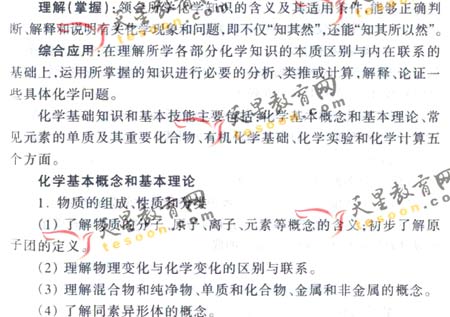 理解(掌握):领会所学化学知识的含义及其适用条件,能够正确判
断、解释和说明有关化学现象和问题,即不仅“知其然”,还能“知其所以然”。
综合应用:在理解所学各部分化学知识的本质区别与内在联系的
基础上,运用所掌握的知识进行必要的分析、类推或计算,解释、论证一
些具体化学问题。
化学基础知识和基本技能主要包括:化学基本概念和基本理论、常
见元素的单质及其重要化合物、有机化学基础、化学实验和化学计算五
个方面。
化学基本概念和基本理论
1. 物质的组成、性质和分类
(1) 了解物质的分子、原子、离子、元素等概念的含义;初步了解原
子团的定义。
(2) 理解物理变化与化学变化的区别与联系。
(3) 理解混合物和纯净物、单质和化合物、金属和非金属的概念。
(4) 了解同素异形体的概念。
天星教育网
tesoon.com
天星教育网
tesoon.com
天星教育网
tesoon.com